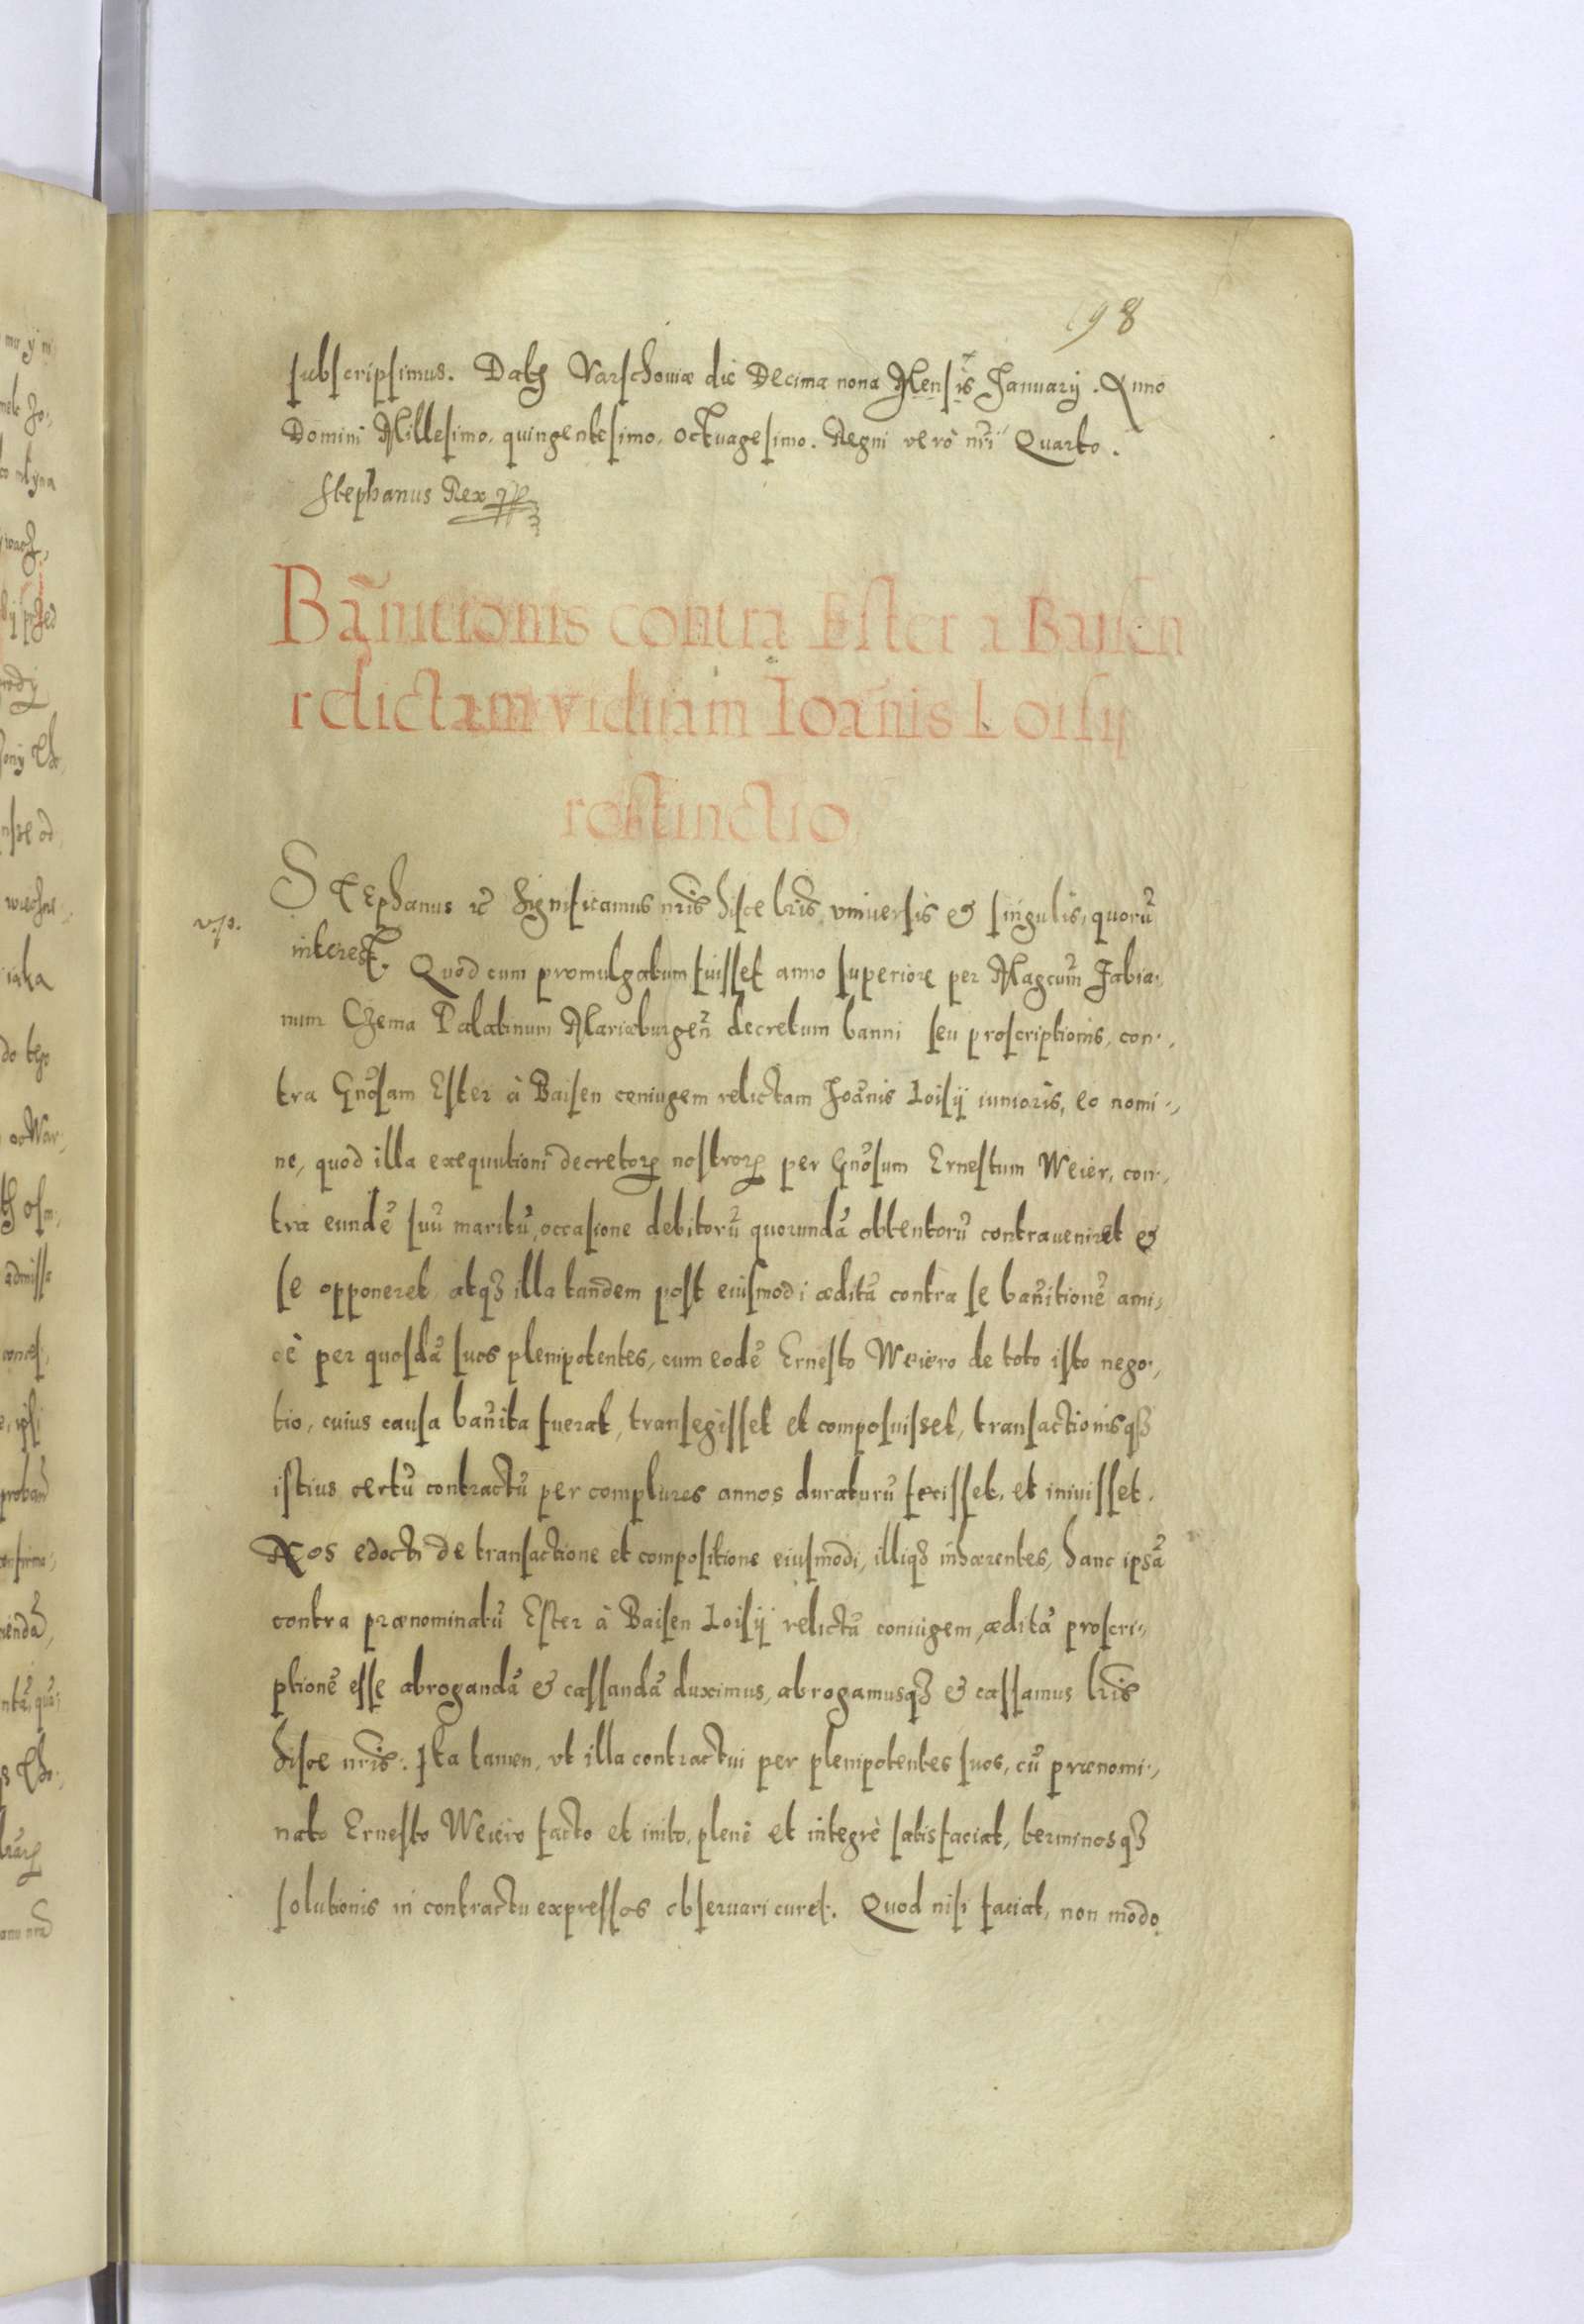 198
subscripsimus. Datꝭ Varschouiæ die Decima nona Mensis January. Anno
Domini Millesimo, quingentesimo, octuagesimo. Regni verò nr̃i Quarto.
Stephanus Rex
Bañitionis contra Ester a Baisen
relictam viduam Ioañis Loisij
restinctio
Stephanus ꝛc̃ Significamus nr̃is hisce lr̃is, vniuersis & singulis, quorũ
interest. Quod cum promulgatum fuisset anno superiore per Magcum̃ Fabia,
num Czema Palatinum Mariæburgeñ decretum banni seu proscriptionis, con,
tra Gñosam Ester à Baisen coniugem relictam Joãnis Loisij iunioris, eo nomi,
ne, quod illa exequutioni decretoꝝ nostroꝝ per Gñosum Ernestum Weier, con,
tra eundẽ suũ maritũ, occasione debitorũ quorundã obtentorũ contraueniret &
se opponeret, atqꝫ illa tandem post eiusmodi æditã contra se bañitionẽ ami,
cè per quosdã suos plenipotentes, cum eodẽ Ernesto Weiero de toto isto nego,
tio, cuius causa bañita fuerat, transegisset et composuisset, transactionisqꝫ
istius certũ contractũ per complures annos duraturũ fecisset, et iniuisset.
Nos edocti de transactione et compositione eiusmodi, illiqꝫ inhærentes, hanc ipsã
contra prænominatũ Ester à Baisen Loisij relictã coniugem, æditã proscri,
ptionẽ esse abrogandã & cassandã duximus, abrogamusqꝫ & cassamus lr̃is
hisce nr̃is: Ita tamen, vt illa contractui per plenipotentes suos, cũ prænomi,
nato Ernesto Weiero facto et inito, plenè et integrè satisfaciat, terminosqꝫ
solutionis in contractu expressos obseruari curet. Quod nisi faciat, non modo